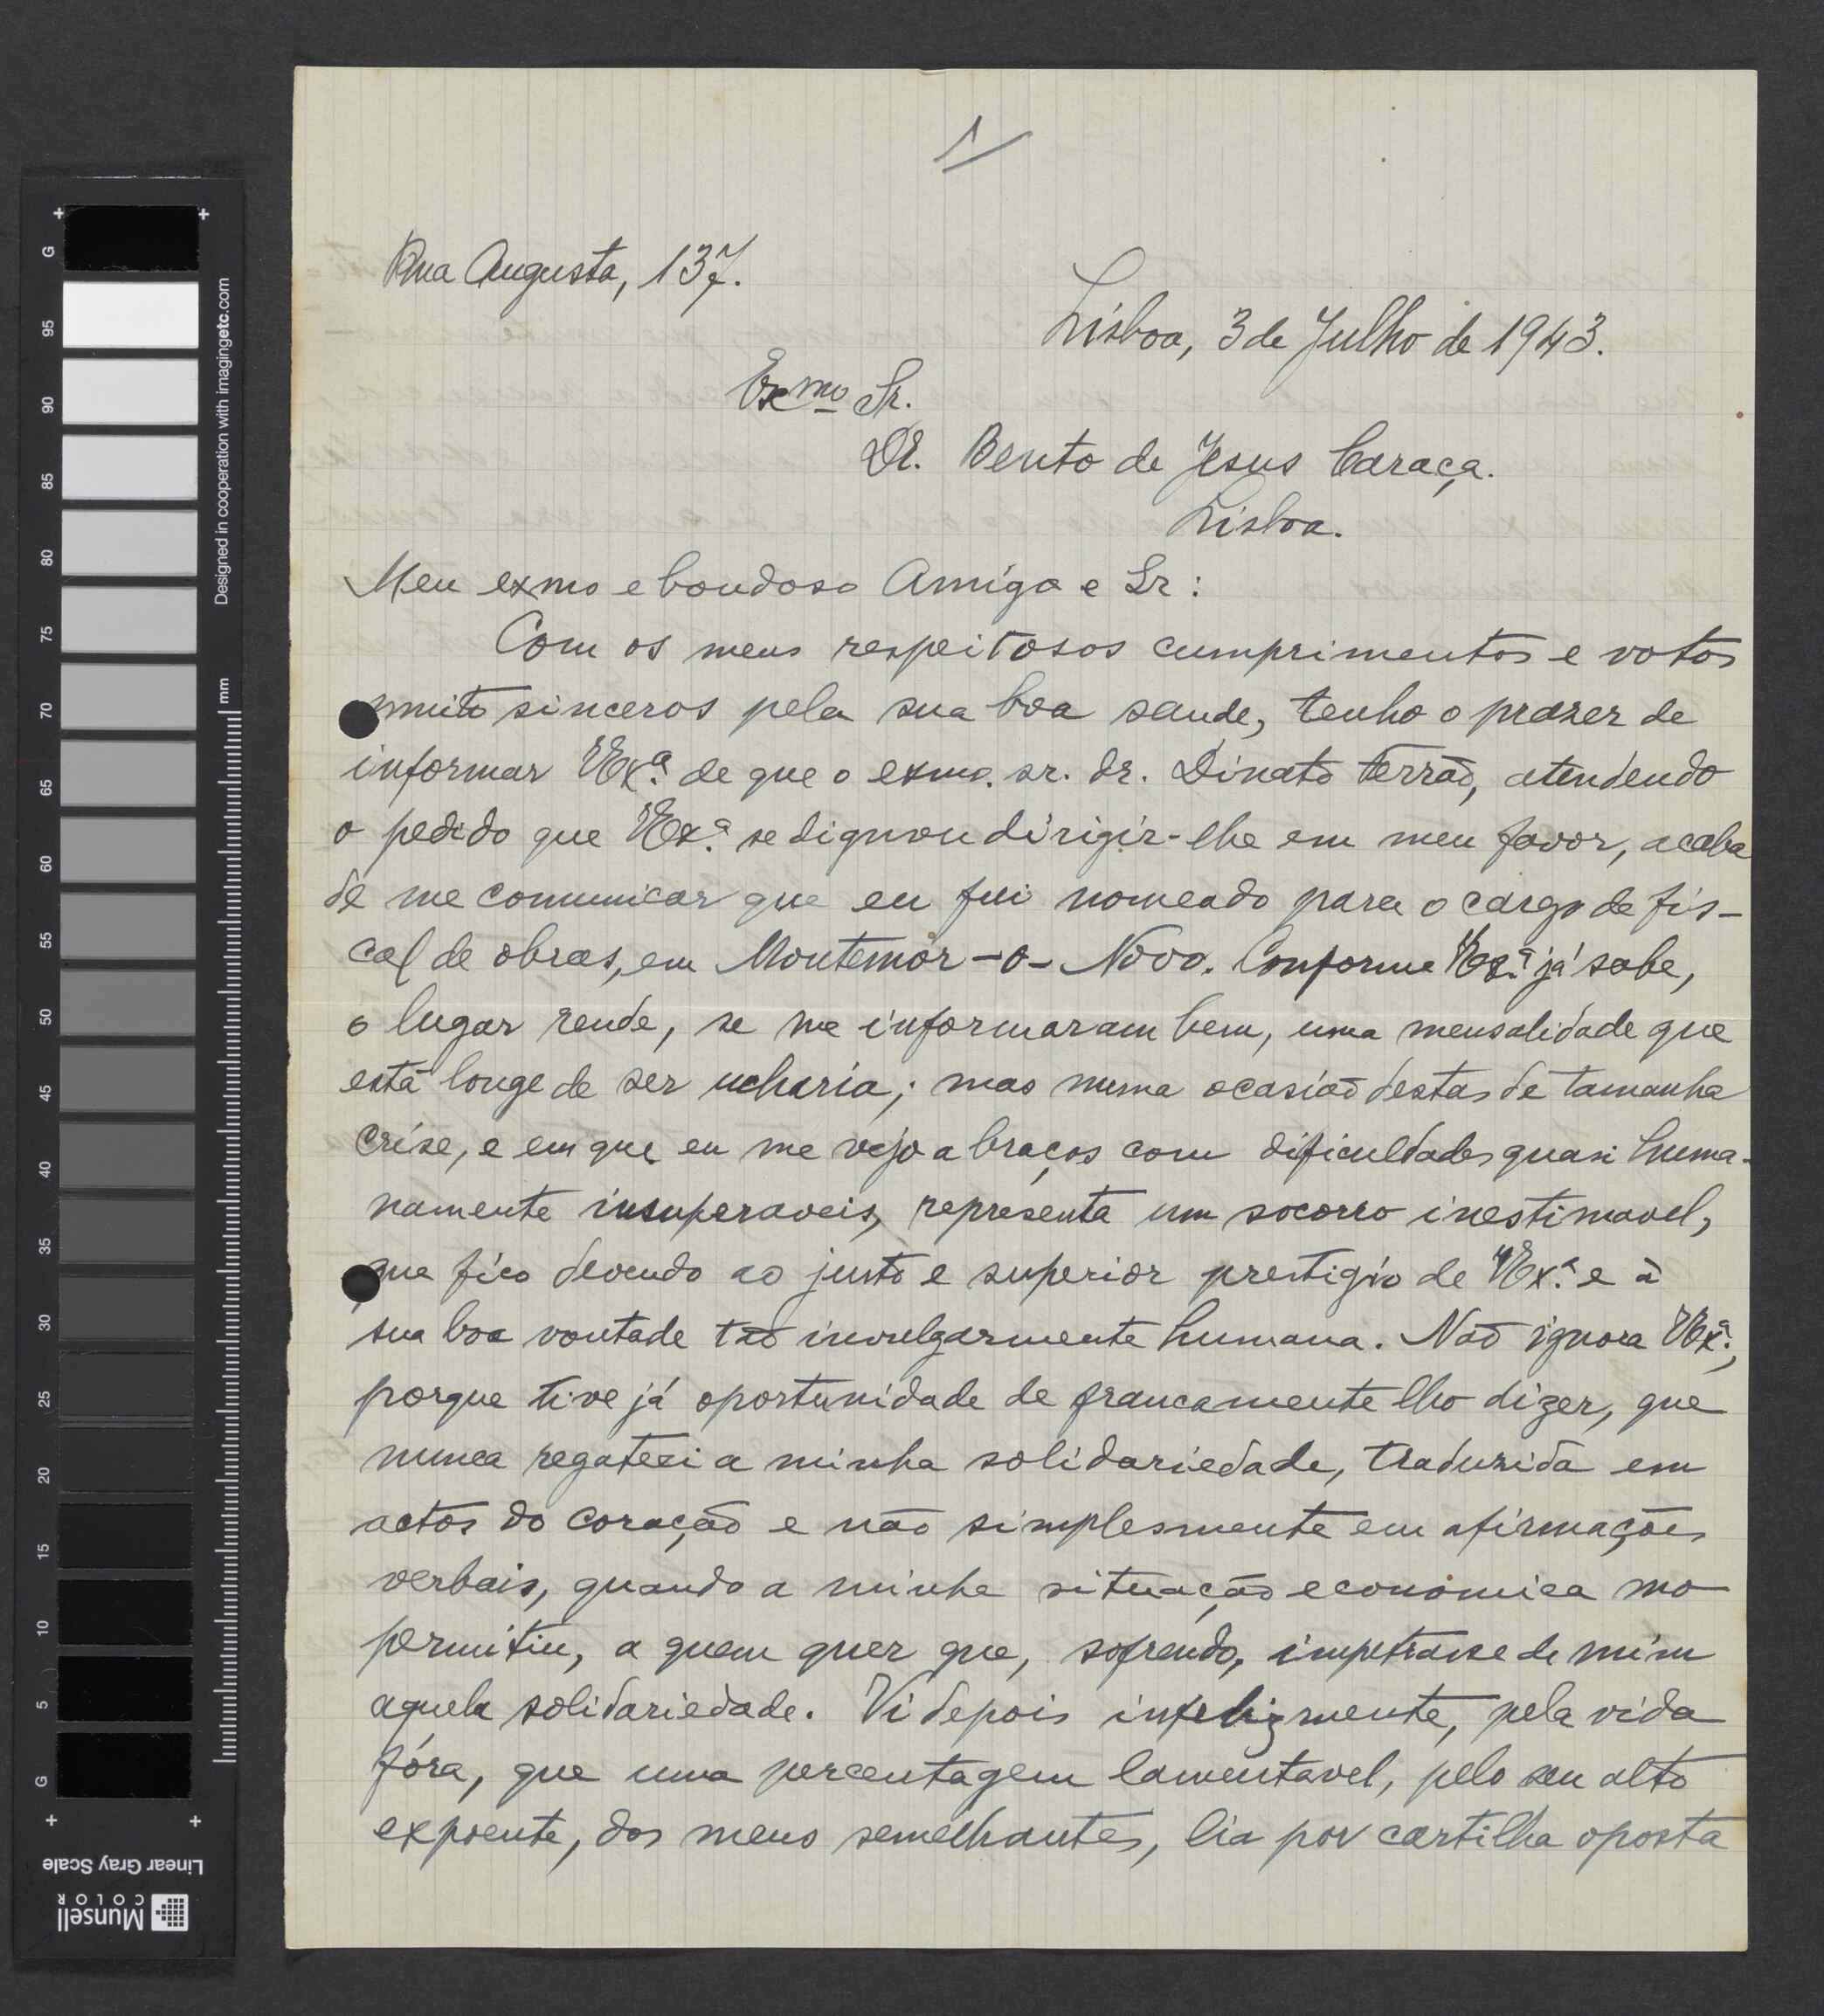 1/
Rua Augusta, 137.
Lisboa, 3 de Julho de 1943.
Exmo Sr.
Dr. Bento de Jesus Caraça.
Lisboa.
Meu exmo e bondoso Amigo e Sr:
Com os meus respeitosos cumprimentos e votos
muito sinceros pela sua boa saude, tenho o prazer de
informar VExª. de que o exmo. sr. dr. Dinato Terrão, atendendo
o pedido que VExª. se dignou dirigir-lhe em meu favor, acaba
de me comunicar que eu fui nomeado para o cargo de fis-
cal de obras, em Montemór-o-Novo. Conforme VExª. já sabe,
o lugar rende, se me informaram bem, uma mensalidade que
está longe de ser ucharia; mas numa ocasião destas de tamanha
crise, e em que eu me vejo a braços com dificuldades quasi huma-
namente insuperaveis, representa um socorro inestimavel,
que fico devendo ao justo e superior prestigio de VExª. e à
sua boa vontade tão invulgarmente humana. Não ignora VExª.,
porque tive já oportunidade de francamente lho dizer, que
nunca regateei a minha solidariedade, traduzida em
actos do coração e não simplesmente em afirmações
verbais, quando a minha situação economica mo
permitiu, a quem quer que, sofrendo, impetrasse de mim
aquela solidariedade. Vi depois infelizmente, pela vida
fóra, que uma percentagem lamentavel, pelo seu alto
expoente, dos meus semelhantes, lia por cartilha oposta
G
95
90
85
80
75
70
65
60
55
50
45
40
35
30
25
20
15
10
5
G
Designed in cooperation with imagingetc.com
mm
Linear Gray Scale
Munsell
COLOR